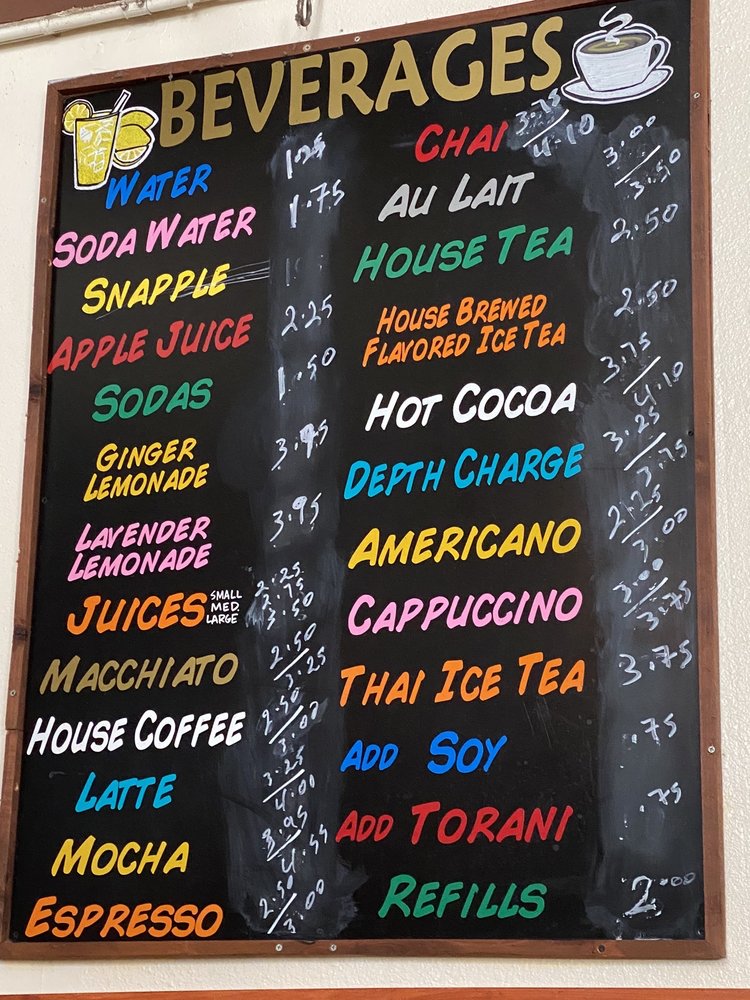 BEVERAGES
WATER 1.25
SODA WATER 1.75
SNAPPLE
APPLE JUICE 2.25
SODAS 1.50
GINGER
LEMONADE 3.95
LAVENDER
LEMONADE 3.95
JUICES SMALL 2.25
MED. 2.75
LARGE 3.50
MACCHIATO 2.50/3.25
HOUSE COFFEE 2.50/3.00
LATTE 3.25/4.00
MOCHA 3.95/4.55
ESPRESSO 2.50/3.00
CHAI 3.75/4.10
AU LAIT 3.00/3.50
HOUSE TEA 2.50
HOUSE BREWED
FLAVORED ICE TEA 2.50
HOT COCOA 3.75/4.10
DEPTH CHARGE 3.25/3.75
AMERICANO 2.25/3.00
CAPPUCCINO 3.00/3.75
THAI ICE TEA 3.75
ADD SOY .75
ADD TORANI .75
REFILLS 2.00